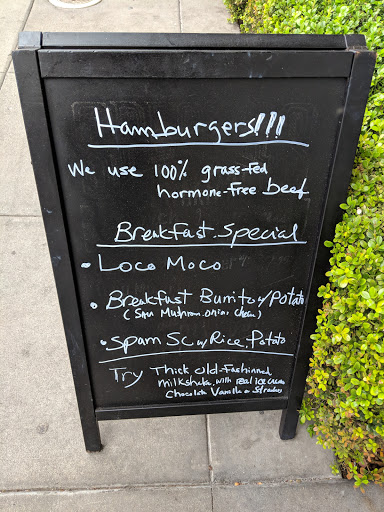 Hamburgers!!!
We use 100% grass-fed
hormone-free beef
Breakfast Special
• Loco Moco
• Breakfast Burrito w/ Potato
( Mushroom. onini
• Spam Sc w/ Rice, Potato
Try Thick old-fashinned
milkshake, with real ice cream
Chocolate Vanilla